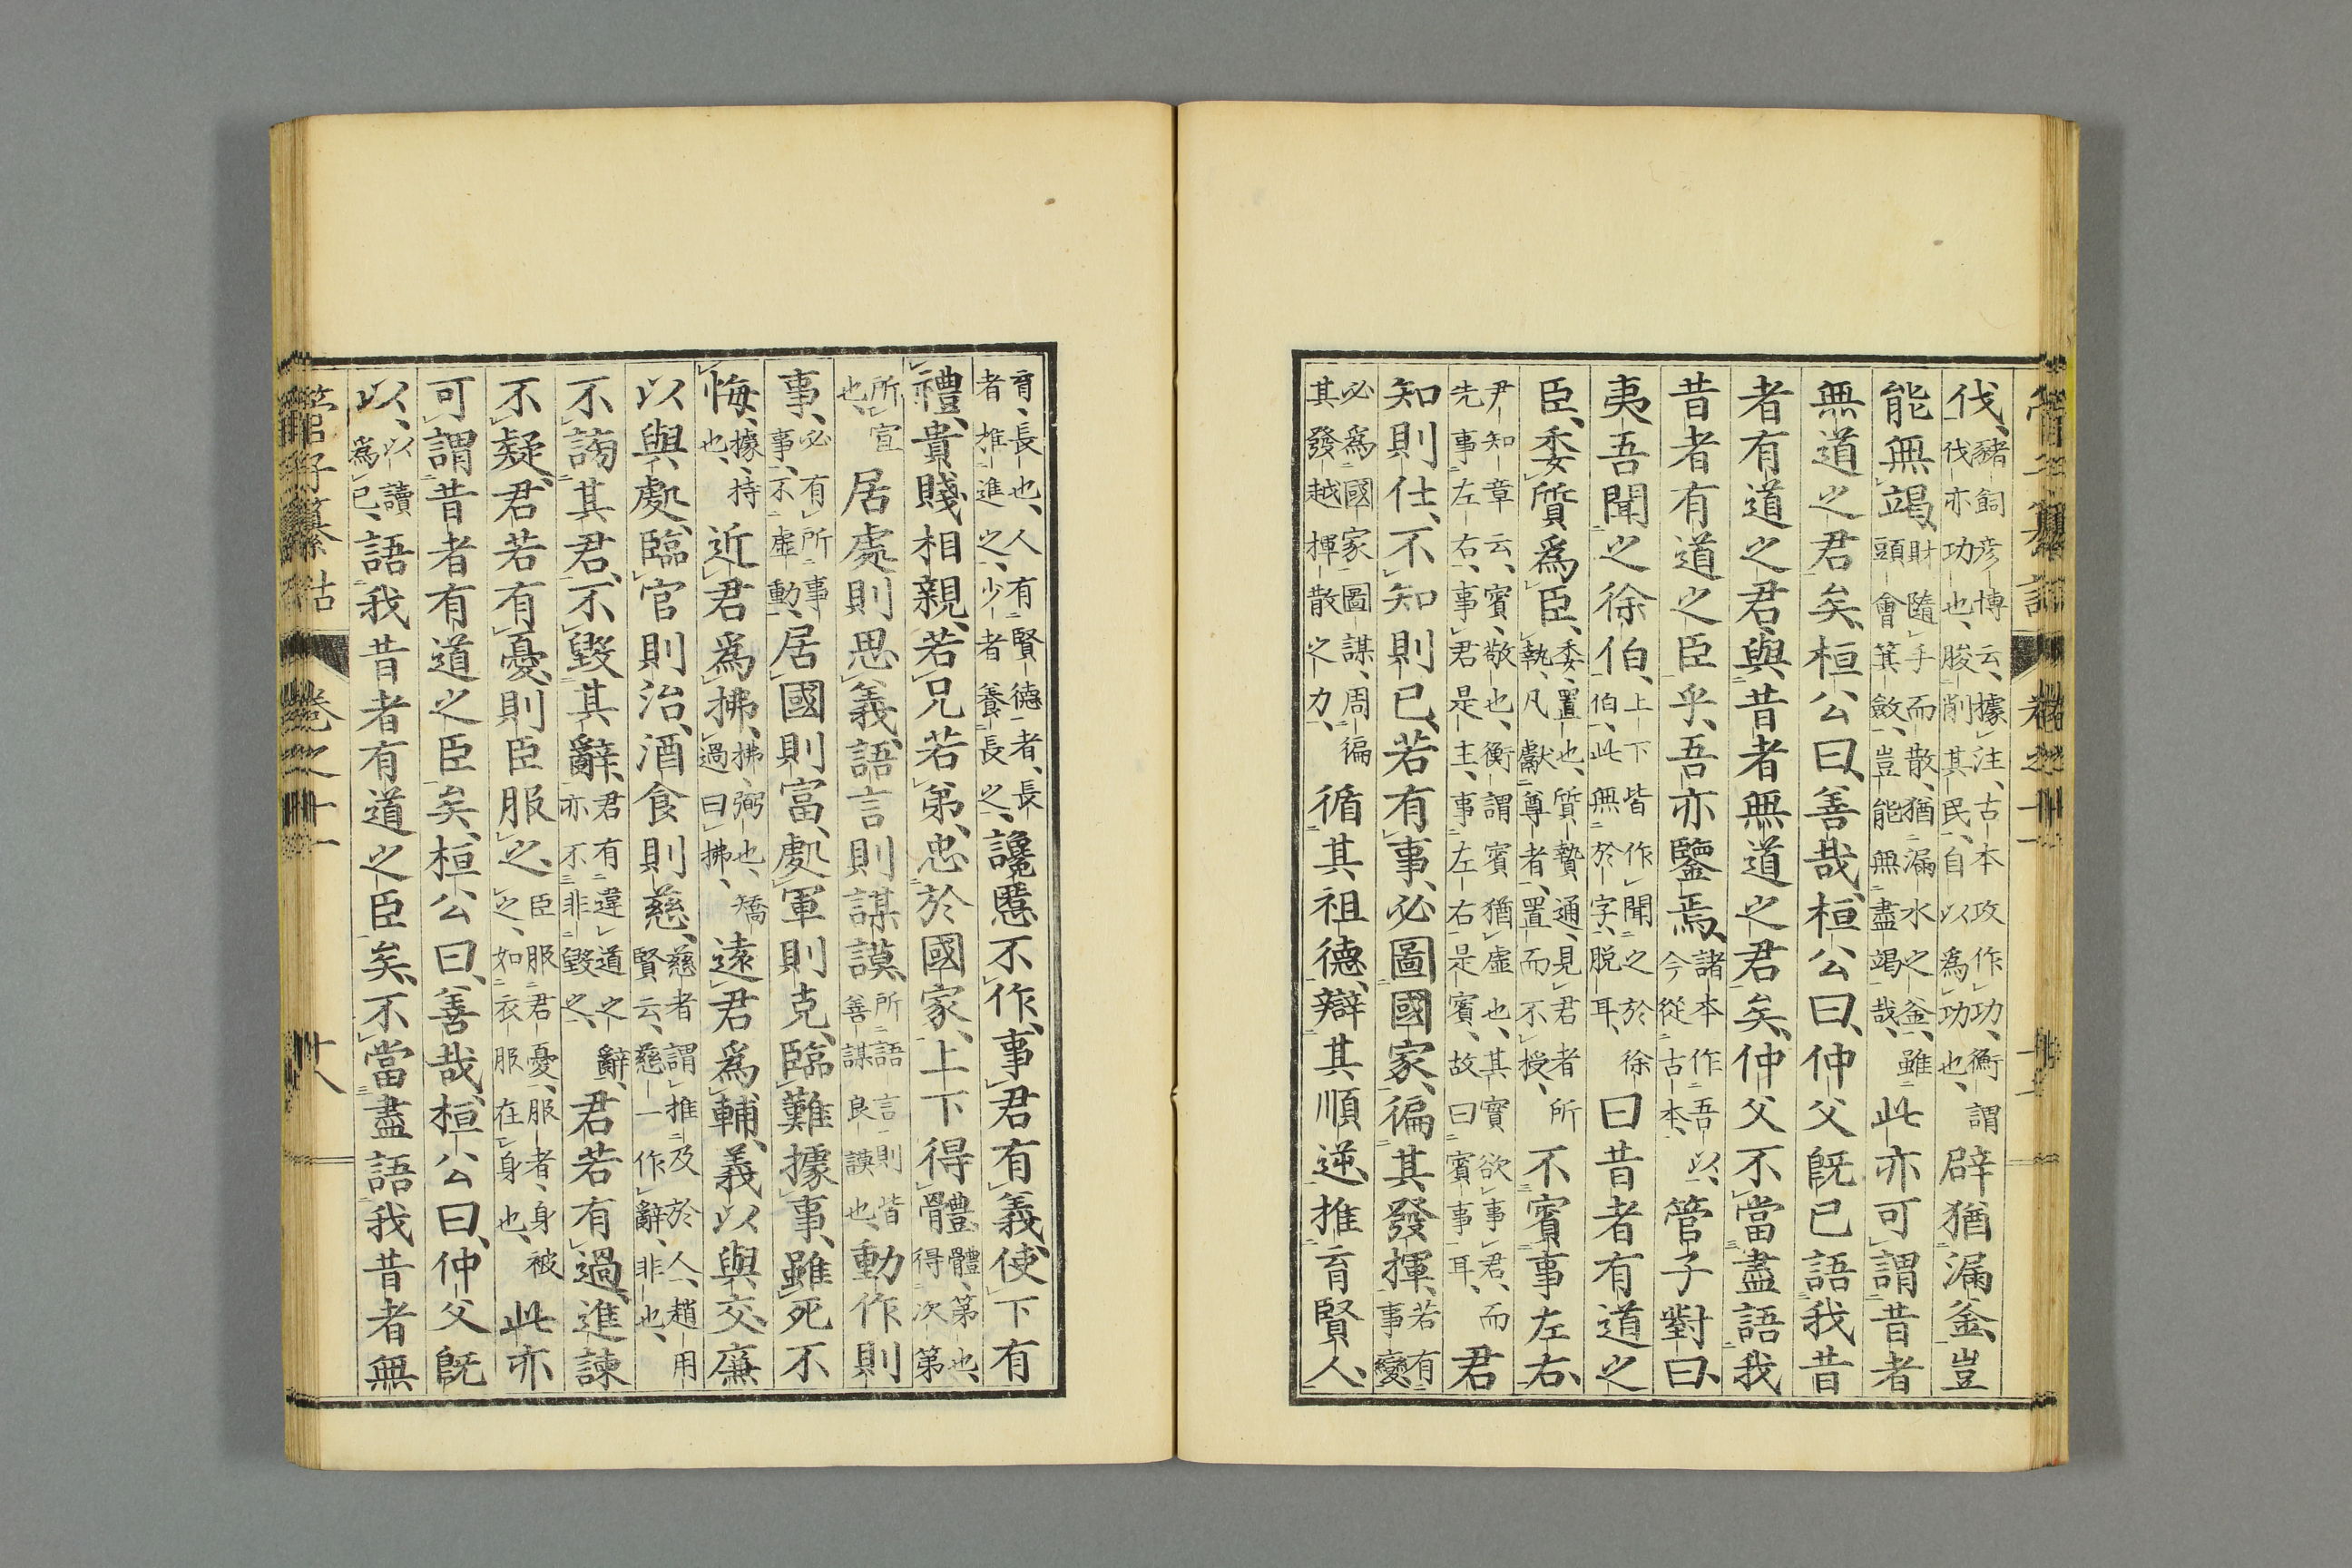 伐、豬飼彥博云、據注、古本攻作功、衡謂伐亦功也、朘削其民、自以爲功也、辟猶漏釜、豈
能無竭、財隨手而散、猶漏水之釜、雖頭會箕斂、豈能無盡竭哉、此亦可謂昔者
無道之君矣、桓公曰、善哉、桓公曰、仲父既已語我昔
者有道之君、與昔者無道之君矣、仲父不當盡語我
昔者有道之臣乎、吾亦鑒焉、諸本作吾以、今從古本、管子對曰、
夷吾聞之徐伯、上下皆作聞之於徐伯、此無於字、脫耳、曰昔者有道之
臣、委質爲臣、委、置也、質、贄通、見君者所執、凡獻尊者、置而不授、不賓事左右、
尹知章云、賓、敬也、衡謂賓猶虛也、其實欲事君、而先事左右、事君是主、事左右是賓、故曰賓事耳、君
知則仕、不知則已、若有事、必圖國家、徧其發揮、若有事變
必爲國家圖謀、周徧其發越揮散之力、循其祖德、辯其順逆、推育賢人、
育、長也、人有賢德者、長者推進之、少者養長之、讒慝不作、事君有義、使下有
禮、貴賤相親、若兄若弟、忠於國家、上下得體、體、第也、得次第
所宣也、居處則思義、語言則謀謨、所語言則皆善謀良謨也、動作則
事、必有所事事、不虛動、居國則富、處軍則克、臨難據事、雖死不
悔、據、持也、近君爲拂、拂、弼也、矯過曰拂、遠君爲輔、義以與交、廉
以與處、臨官則治、酒食則慈、慈者謂推及於人、趙用賢云、慈一作辭、非也、
不謗其君、不毀其辭、君有違道之辭、亦不非毀之、君若有過、進諫
不疑、君若有憂、則臣服之、臣服君憂、服者、身被之、如衣服在身也、此亦
可謂昔者有道之臣矣、桓公曰、善哉、桓公曰、仲父既
以、以讀爲已、語我昔者有道之臣矣、不當盡語我昔者無
管子纂詁 卷之十一 十八